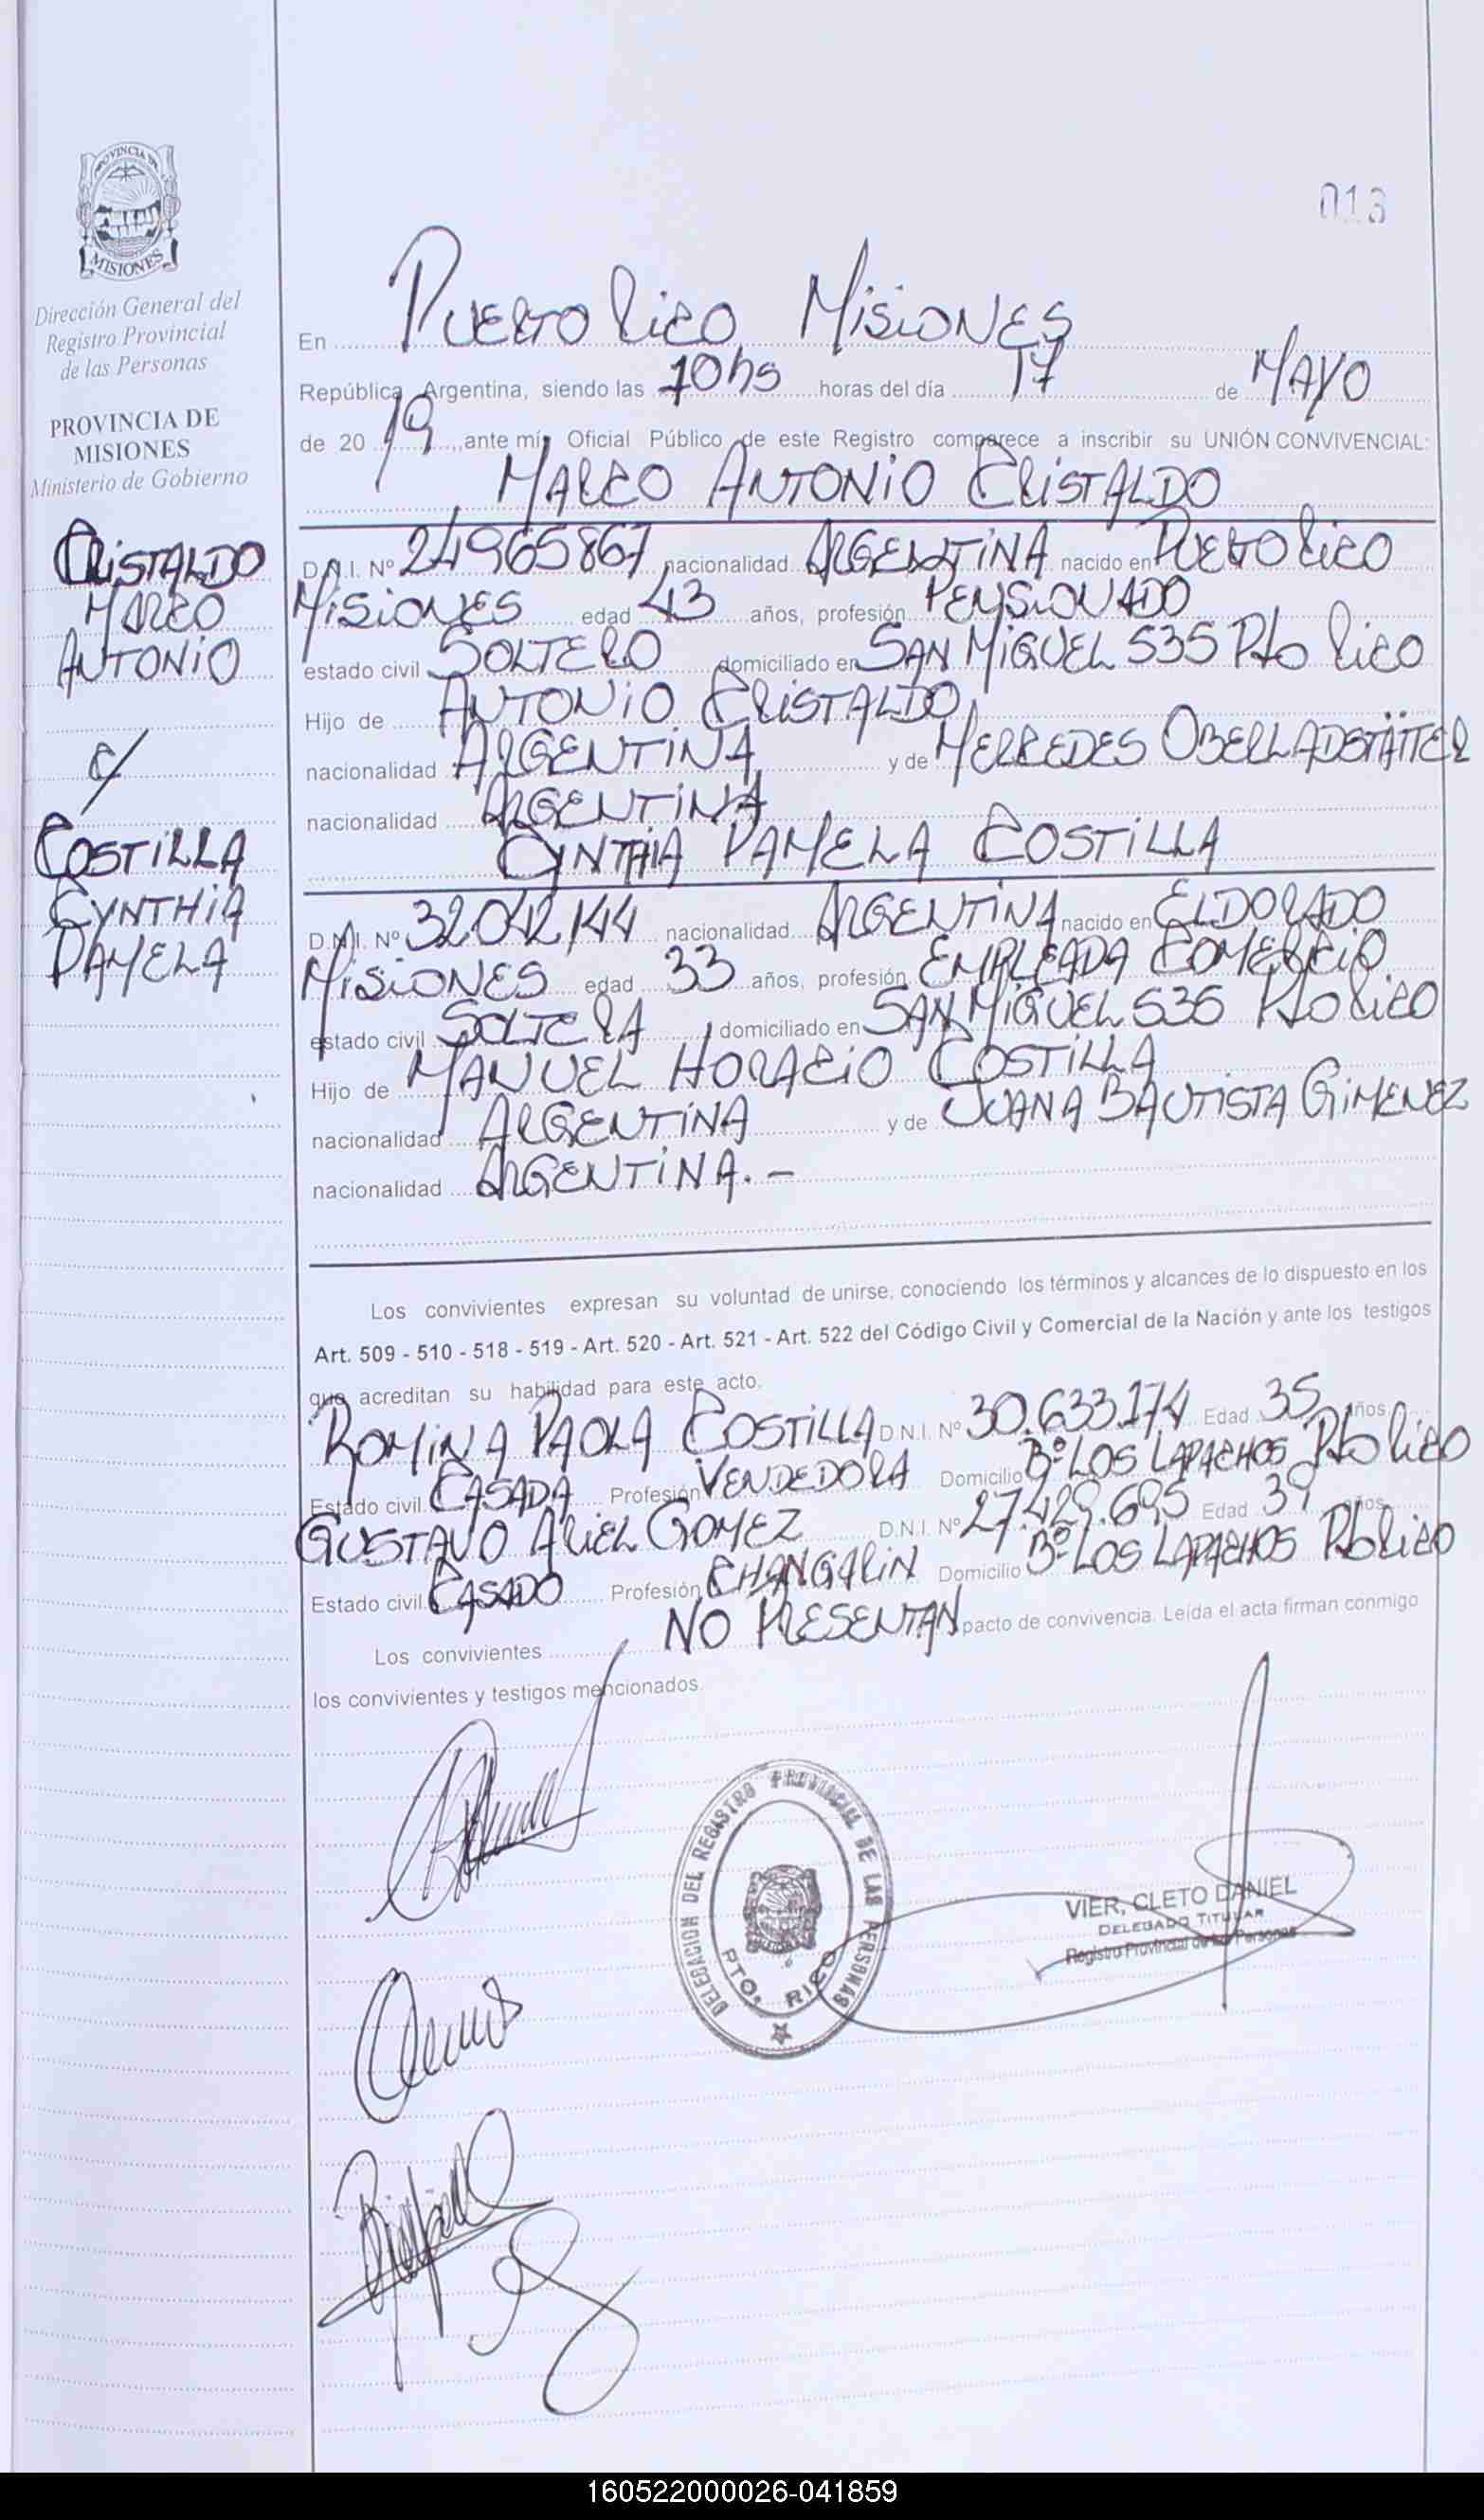 013
PROVINCIA DE
MISIONES
Dirección General del
Registro Provincial
de las Personas
PROVINCIA DE
MISIONES
Ministerio de Gobierno
CRISTALDO
MARCO
ANTONIO
c/
COSTILLA
CYNTHIA
PAMELA
En PUERTO RICO MISIONES
República Argentina, siendo las 10hs horas del día 17 de MAYO
de 20 19, ante mí, Oficial Público de este Registro comparece a inscribir su UNIÓN CONVIVENCIAL:
MARCO ANTONIO CRISTALDO
D.N.I. Nº 24965867 nacionalidad ARGENTINA nacido en PUERTO RICO
MISIONES edad 43 años, profesión PENSIONADO
estado civil SOLTERO domiciliado en SAN MIGUEL 535 Pto RICO
Hijo de ANTONIO CRISTALDO
nacionalidad ARGENTINA y de MERCEDES OBERLLADSTÄTTER
nacionalidad ARGENTINA
CYNTHIA PAMELA COSTILLA
D.N.I. Nº 32042144 nacionalidad ARGENTINA nacido en ELDORADO
MISIONES edad 33 años, profesión EMPLEADA COMERCIO
estado civil SOLTERA domiciliado en SAN MIGUEL 535 Pto RICO
Hijo de MANUEL HORACIO COSTILLA
nacionalidad ARGENTINA y de JUANA BAUTISTA GIMENEZ
nacionalidad ARGENTINA.-
Los convivientes expresan su voluntad de unirse, conociendo los términos y alcances de lo dispuesto en los
Art. 509 - 510 - 518 - 519 - Art. 520 - Art. 521 - Art. 522 del Código Civil y Comercial de la Nación y ante los testigos
que acreditan su habilidad para este acto.
ROMINA PAOLA COSTILLA D.N.I. Nº 30.633.174 Edad 35 años
Estado civil CASADA Profesión VENDEDORA Domicilio Bº LOS LAPACHOS Pto RICO
GUSTAVO ARIEL GOMEZ D.N.I. Nº 27.429.695 Edad 39 años
Estado civil CASADO Profesión CHANGARIN Domicilio Bº LOS LAPACHOS Pto RICO
Los convivientes NO PRESENTAN pacto de convivencia. Leída el acta firman conmigo
los convivientes y testigos mencionados.
DELEGACION DEL REGISTRO PROVINCIAL DE LAS PERSONAS
PTO. RICO
VIER, CLETO DANIEL
DELEGADO TITULAR
Registro Provincial de las Personas
160522000026-041859